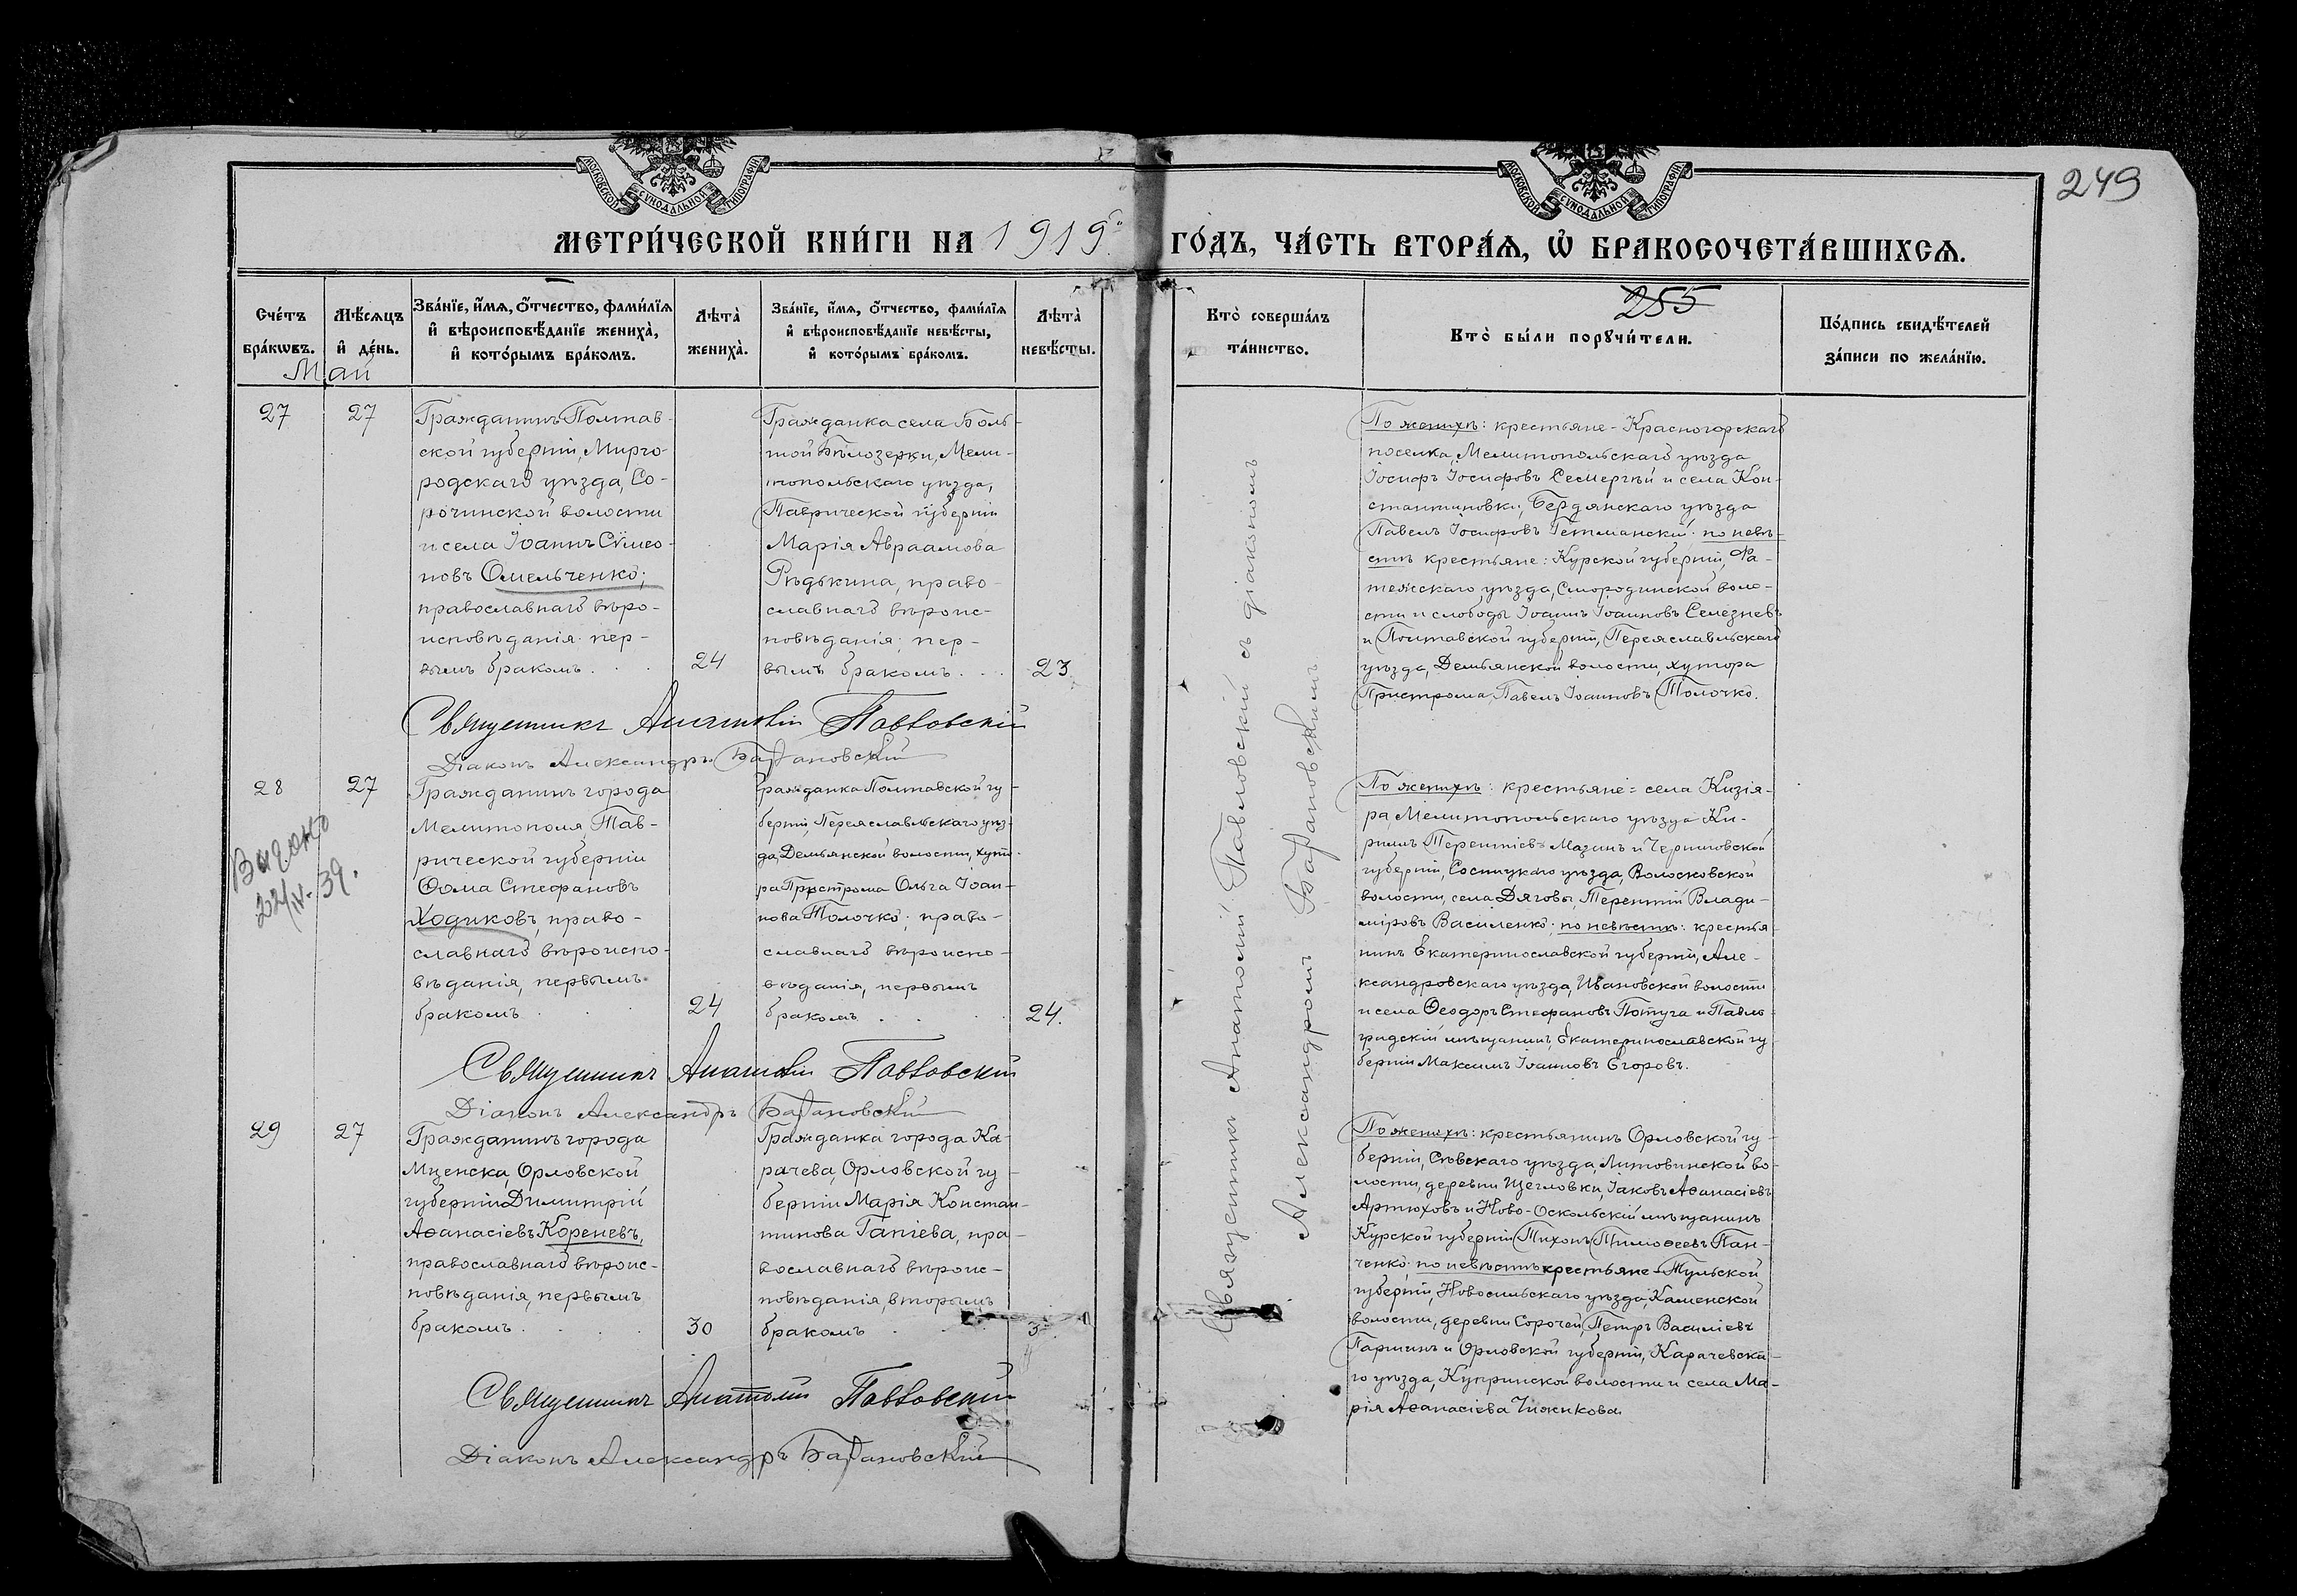 249
МОСКОВСКОЙ СѴНОДАЛЬНОЙ ТИПОГРАФІИ
МОСКОВСКОЙ СѴНОДАЛЬНОЙ ТИПОГРАФІИ
МЕТРИ́ЧЕСКОЙ КНИ́ГИ НА 1919 ГО́ДЪ, ЧА́СТЬ ВТОРА́Я, Ѡ БРАКОСОЧЕТА́ВШИХСЯ.
Сче́тъ бра́кωвъ.
Мѣ́сяцъ и҆ де́нь.
Зва́нїе, и҆́мя, ѻ҆́тчество, фами́лїя
и҆ вѣроисповѣ́данїе жениха̀,
и҆ кото́рымъ бра́комъ.
Лѣта̀ жениха̀.
Зва́нїе, и҆́мя, ѻ҆́тчество, фами́лїя
и҆ вѣроисповѣ́данїе невѣ́сты,
и҆ кото́рымъ бра́комъ.
Лѣта̀ невѣ́сты.
Кто̀ соверша́лъ
та́инство.
255
Кто̀ бы́ли порꙋчи́тели.
По́дпись свидѣ́телей
за́писи по жела́нїю.
Май
27
27
Гражданинъ Полтав-
ской губерніи, Мирго-
родскаго уѣзда, Со-
рочинской волости
и села Іоаннъ Сѵмео-
новъ Омельченко;
православнаго вѣро-
исповѣданія. пер-
вымъ бракомъ . . .
24
Гражданка села Боль-
шой Бѣлозерки, Мели-
топольскаго уѣзда,
Таврической губерніи
Марія Авраамова
Рѣдькина, право-
славнаго вѣроис-
повѣданія; пер-
вымъ бракомъ . . .
23
Священникъ Анатолій Павловскій
Діаконъ Александръ Барановскій
По женихѣ: крестьяне - Красногорскаго
поселка, Мелитопольскаго уѣзда
Іосифъ Іосифовъ Семергѣй и села Кон-
стантиновки, Бердянскаго уѣзда
Павелъ Іосифовъ Гетманскій. по невѣ-
стѣ крестьяне: Курской губерніи, Фа-
тежскаго уѣзда, Смородинской воло-
сти и слободы Іоаннъ Іоанновъ Селезневъ
и Полтавской губерніи, Переяславльскаго
уѣзда, Демьянской волости, хутора
Пристрома, Павелъ Іоанновъ Толочко.
28
27
Выдано
22/IV.-39.
Гражданинъ города
Мелитополя, Тав-
рической губерніи
Ѳома Стефановъ
Ходиковъ, право-
славнаго вѣроиспо-
вѣданія, первымъ
бракомъ . . .
24
Гражданка Полтавской гу-
берніи, Переяславльскаго уѣз-
да, Демьянской волости, хуто-
ра Пристрома Ольга Іоан-
нова Толочко; право-
славнаго вѣроиспо-
вѣданія, первымъ
бракомъ . . .
24.
Священникъ Анатолій Павловскій
Діаконъ Александръ Барановскій
По женихѣ: крестьяне: села Кизія-
ра, Мелитопольскаго уѣзда Ки-
риллъ Терентіевъ Мазанъ и Черниговской
губерніи, Сосницкаго уѣзда, Волосковской
волости, села Дяговы, Терентій Влади-
міровъ Василенко; по невѣстѣ: крестья-
нинъ Екатеринославской губерніи, Але-
ксандровскаго уѣзда, Ивановской волости
и села Ѳеодоръ Стефановъ Потуга и Павло-
градскій мѣщанинъ, Екатеринославской гу-
берніи Максимъ Іоанновъ Егоровъ.
29
27
Гражданинъ города
Мценска, Орловской
губерніи Димитрій
Аѳанасіевъ Кореневъ,
православнаго вѣроис-
повѣданія, первымъ
бракомъ . . .
30
Гражданка города Ка-
рачева, Орловской гу-
берніи Марія Констан-
тинова Гапіева, пра-
вославнаго вѣроис-
повѣданія, вторымъ
бракомъ . . .
Священникъ Анатолій Павловскій
Діаконъ Александръ Барановскій
По женихѣ: крестьянинъ Орловской гу-
берніи, Сѣвскаго уѣзда, Литовинской во-
лости, деревни Щегловки, Іаковъ Аѳанасіевъ
Артюховъ и Ново-Оскольскій мѣщанинъ
Курской губерніи Тихонъ Тимоѳеевъ Пан-
ченко; по невѣстѣ крестьяне - Тульской
губерніи, Новосильскаго уѣзда, Каменской
волости, деревни Сорочей, Петръ Василіевъ
Паршинъ и Орловской губерніи, Карачевска-
го уѣзда, Купринской волости и села Ма-
рія Аѳанасіева Чижикова.
Священникъ Анатолій Павловскій съ діакономъ
Александромъ Барановскимъ